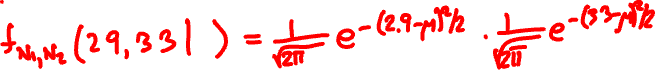 f_{N₁,N₂}(29,33| ) = 1/√2π e^{-(2.9-μ)²/2} · 1/√2π e^{-(33-μ)²/2}